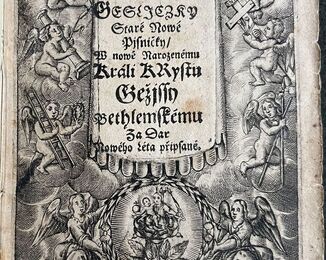 GESLICZKY
Staré Nowé
Pjsničky/
W nowě Narozenému
Králi KRystu
Gežjssy
Bethlemskému
Za Dar
Nowého Léta připsané.